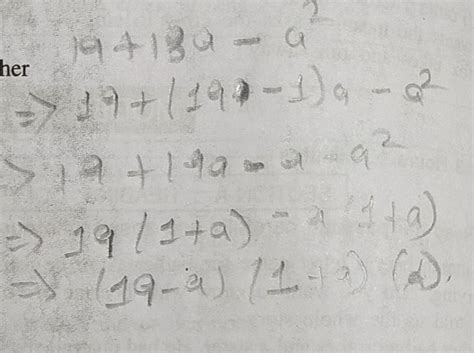 19 + 18a - a²
her
=> 19 + (19 - 1)a - a²
> 19 + 19a - a - a²
=> 19 (1+a) - a (1+a)
=> (19-a) (1+a) (a).